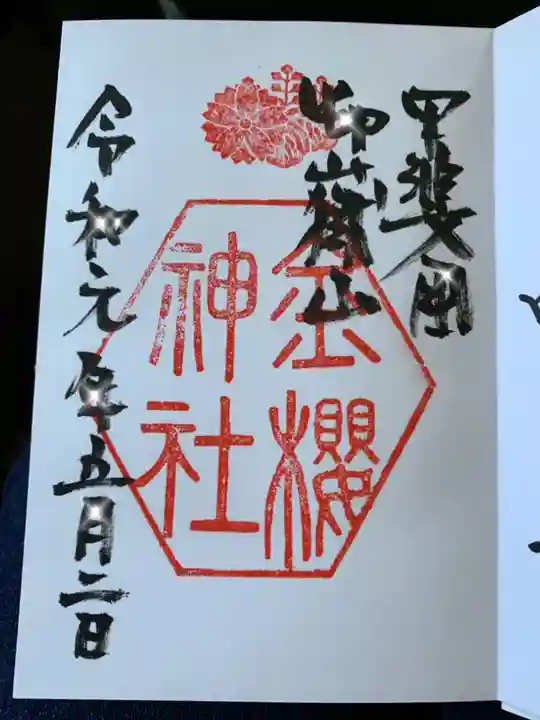 甲斐國
御嶽山
金櫻
神社
令和元年五月二日